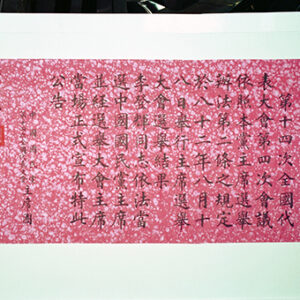 第十四次全國代
表大會第四次會議
依照本黨主席選舉
辦法第二條之規定
於八十二年八月十
八日舉行主席選舉
大會選舉結果
李登輝同志依法當
選中國國民黨主席
茲經選舉大會主席
當場正式宣布特此
公告
中國國民黨